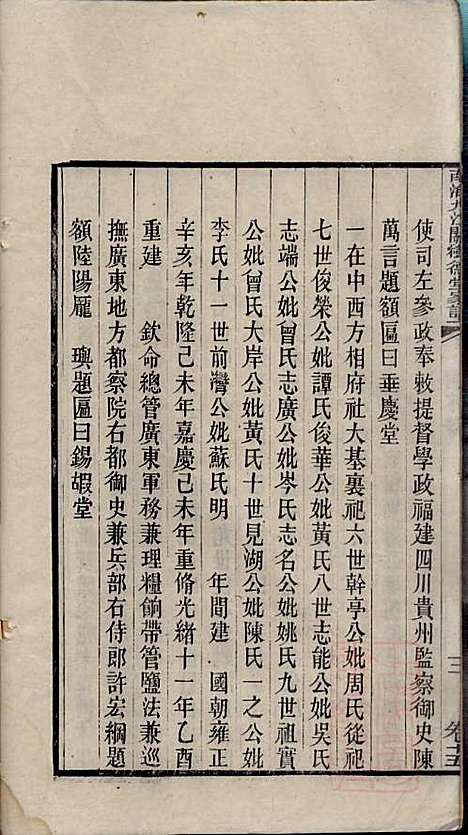 南海九江關樹德堂家譜
三
卷十五
使司左參政奉敕提督學政福建四川貴州監察御史陳
萬言題額匾曰垂慶堂
一在中西方相府社大基裏祀六世幹亭公妣周氏從祀
七世俊榮公妣譚氏俊華公妣黃氏八世志能公妣吳氏
志端公妣曾氏志廣公妣岑氏志名公妣姚氏九世祖實
公妣曾氏大岸公妣黃氏十世見湖公妣陳氏一之公妣
李氏十一世前灣公妣蘇氏明 年間建 國朝雍正
辛亥年乾隆己未年嘉慶己未年重脩光緒十一年乙酉
重建 欽命總管廣東軍務兼理糧餉帶管鹽法兼巡
撫廣東地方都察院右都御史兼兵部右侍郎許宏綱題
額陸陽龐 璵題匾曰錫嘏堂